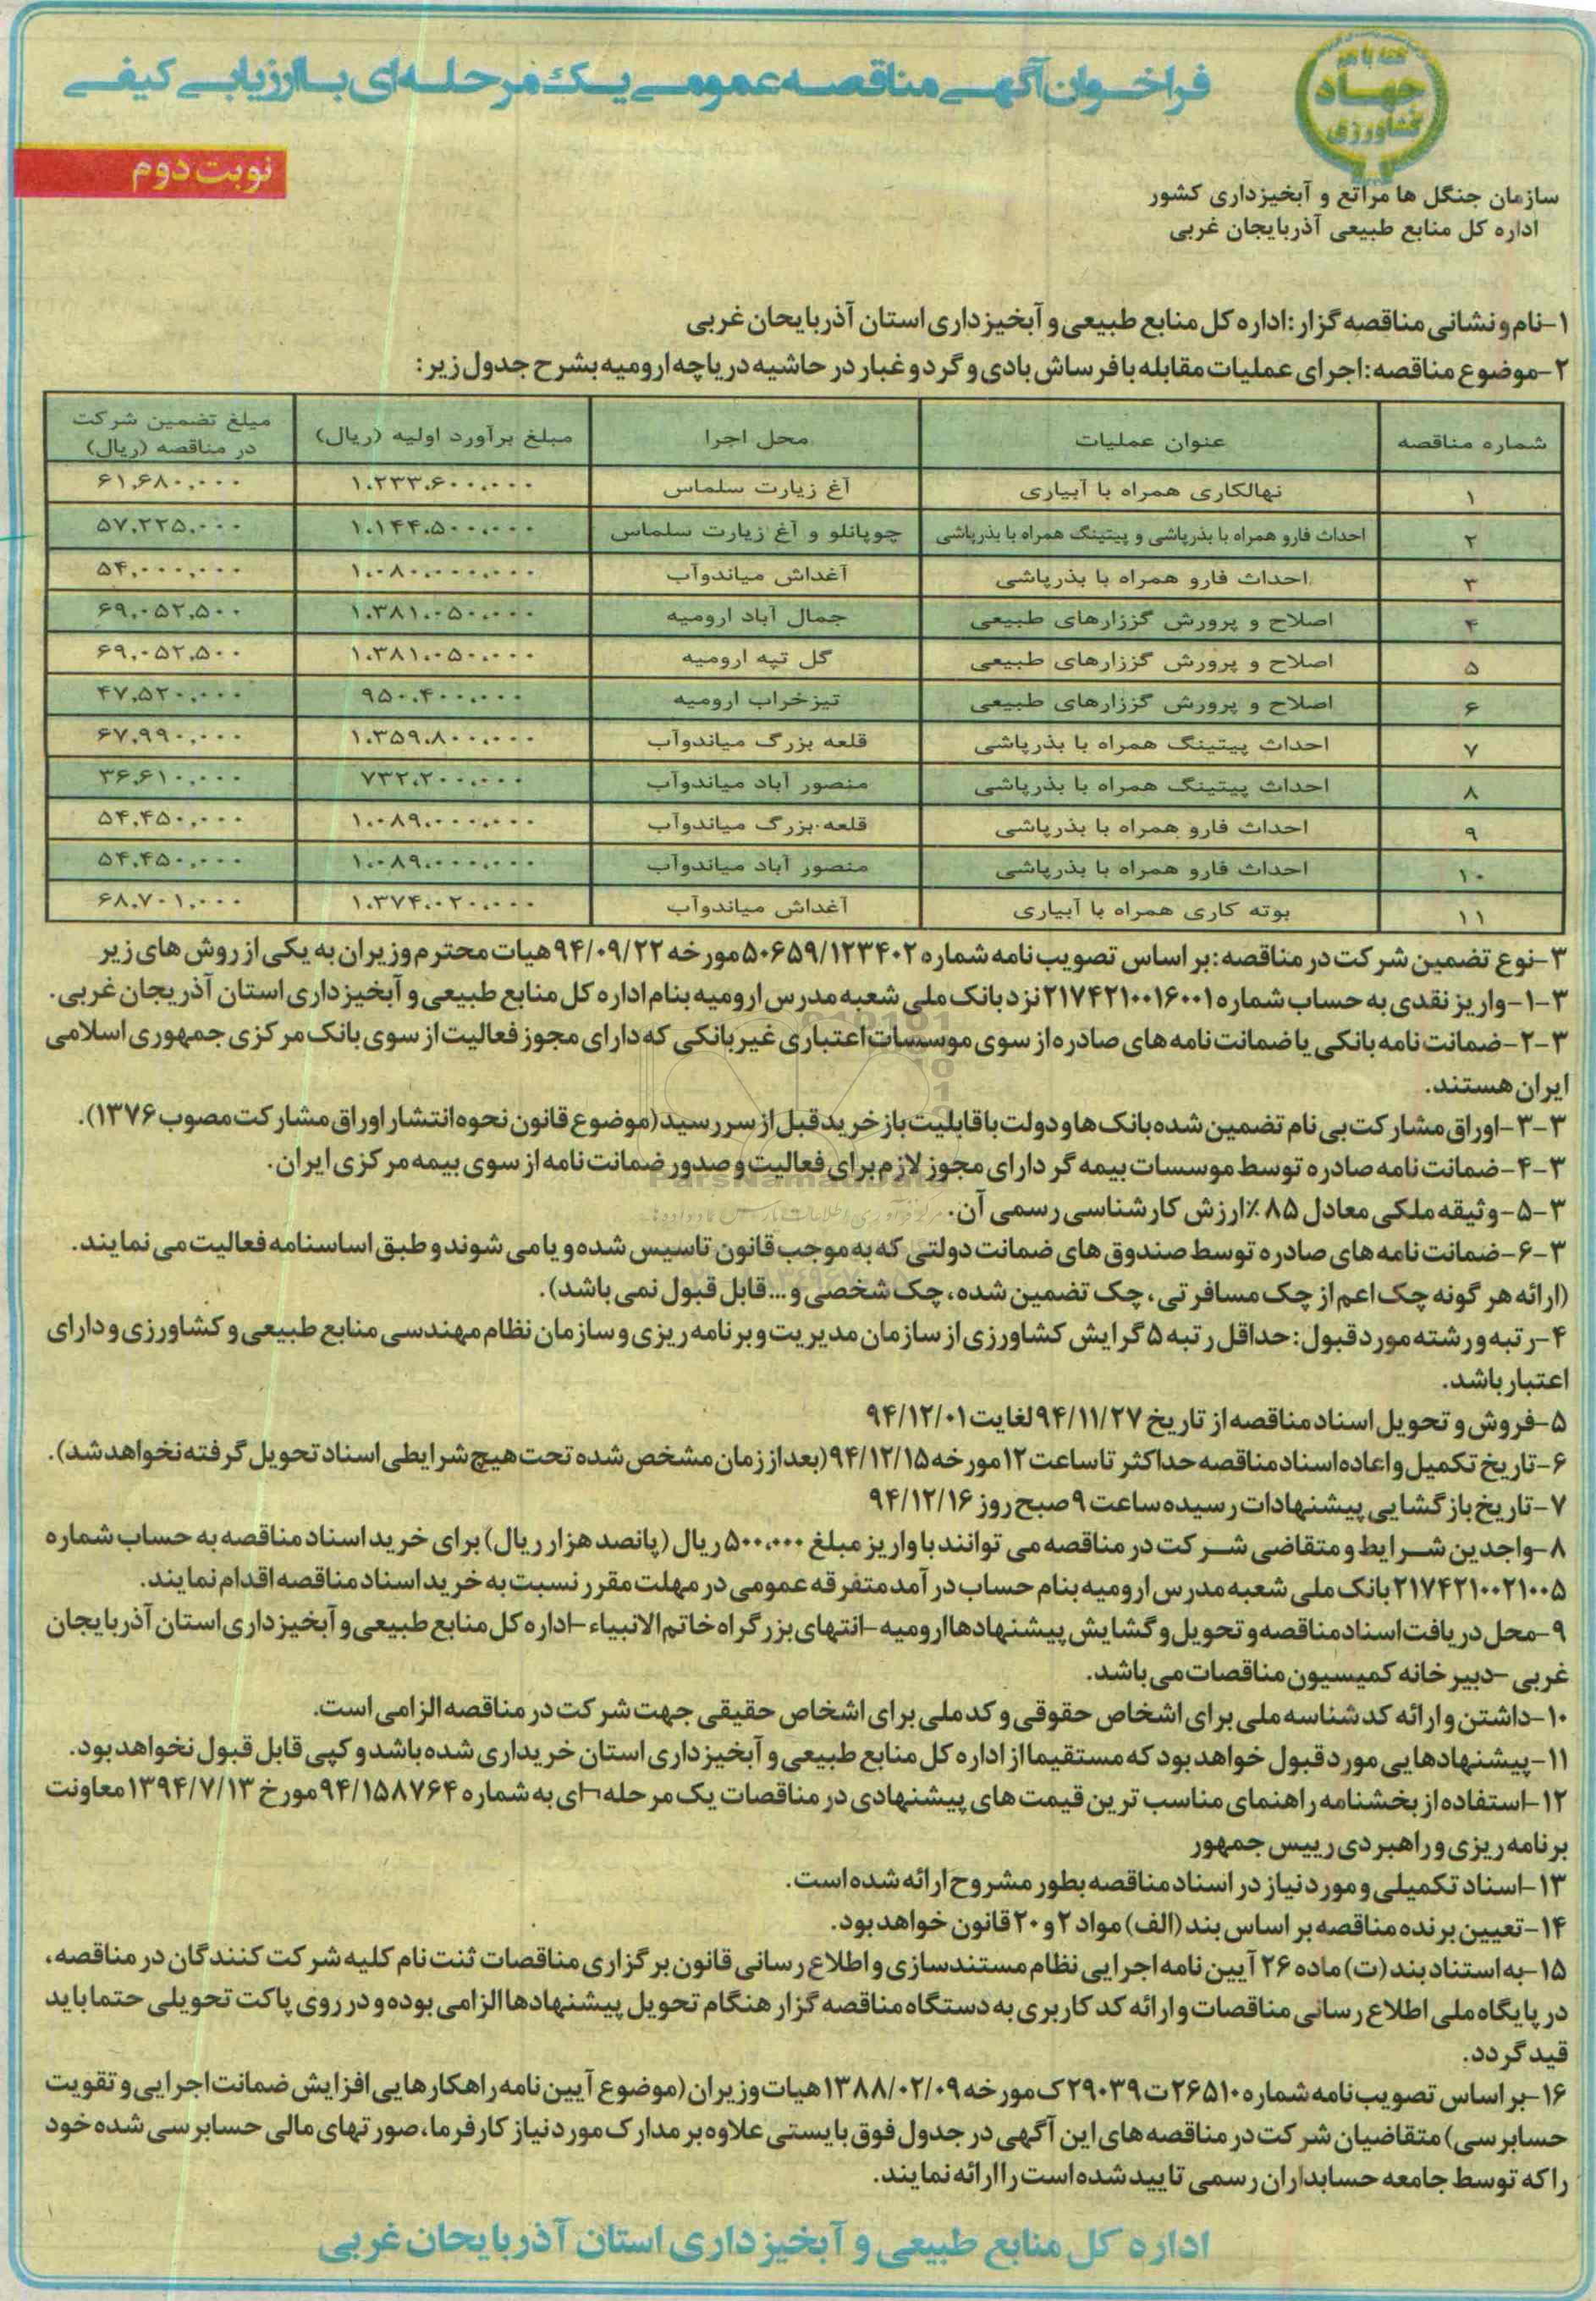 فراخوان آگهی مناقصه عمومی یک مرحله‌ای با ارزیابی کیفی
همه با هم
جهاد
کشاورزی
نوبت دوم
سازمان جنگل ها مراتع و آبخیزداری کشور
اداره کل منابع طبیعی آذربایجان غربی
۱-نام و نشانی مناقصه گزار: اداره کل منابع طبیعی و آبخیزداری استان آذربایجان غربی
۲-موضوع مناقصه: اجرای عملیات مقابله با فرساش بادی و گرد و غبار در حاشیه دریاچه ارومیه بشرح جدول زیر:
شماره مناقصه | عنوان عملیات | محل اجرا | مبلغ برآورد اولیه (ریال) | مبلغ تضمین شرکت در مناقصه (ریال)
۱ | نهالکاری همراه با آبیاری | آغ زیارت سلماس | ۱.۲۳۳.۶۰۰.۰۰۰ | ۶۱.۶۸۰.۰۰۰
۲ | احداث فارو همراه با بذرپاشی و پیتینگ همراه با بذرپاشی | چوپانلو و آغ زیارت سلماس | ۱.۱۴۴.۵۰۰.۰۰۰ | ۵۷.۲۲۵.۰۰۰
۳ | احداث فارو همراه با بذرپاشی | آغداش میاندوآب | ۱.۰۸۰.۰۰۰.۰۰۰ | ۵۴.۰۰۰.۰۰۰
۴ | اصلاح و پرورش گززارهای طبیعی | جمال آباد ارومیه | ۱.۳۸۱.۰۵۰.۰۰۰ | ۶۹.۰۵۲.۵۰۰
۵ | اصلاح و پرورش گززارهای طبیعی | گل تپه ارومیه | ۱.۳۸۱.۰۵۰.۰۰۰ | ۶۹.۰۵۲.۵۰۰
۶ | اصلاح و پرورش گززارهای طبیعی | تیزخراب ارومیه | ۹۵۰.۴۰۰.۰۰۰ | ۴۷.۵۲۰.۰۰۰
۷ | احداث پیتینگ همراه با بذرپاشی | قلعه بزرگ میاندوآب | ۱.۳۵۹.۸۰۰.۰۰۰ | ۶۷.۹۹۰.۰۰۰
۸ | احداث پیتینگ همراه با بذرپاشی | منصور آباد میاندوآب | ۷۳۲.۲۰۰.۰۰۰ | ۳۶.۶۱۰.۰۰۰
۹ | احداث فارو همراه با بذرپاشی | قلعه بزرگ میاندوآب | ۱.۰۸۹.۰۰۰.۰۰۰ | ۵۴.۴۵۰.۰۰۰
۱۰ | احداث فارو همراه با بذرپاشی | منصور آباد میاندوآب | ۱.۰۸۹.۰۰۰.۰۰۰ | ۵۴.۴۵۰.۰۰۰
۱۱ | بوته کاری همراه با آبیاری | آغداش میاندوآب | ۱.۳۷۴.۰۲۰.۰۰۰ | ۶۸.۷۰۱.۰۰۰
۳-نوع تضمین شرکت در مناقصه: بر اساس تصویب نامه شماره ۵۰۶۵۹/۱۲۳۴۰۲ مورخه ۹۴/۰۹/۲۲ هیات محترم وزیران به یکی از روش های زیر
۳-۱-واریز نقدی به حساب شماره ۲۱۷۴۲۱۰۰۱۶۰۰۱ نزد بانک ملی شعبه مدرس ارومیه بنام اداره کل منابع طبیعی و آبخیزداری استان آذریجان غربی.
۳-۲-ضمانت نامه بانکی یا ضمانت نامه های صادره از سوی موسسات اعتباری غیر بانکی که دارای مجوز فعالیت از سوی بانک مرکزی جمهوری اسلامی
ایران هستند.
۳-۳-اوراق مشارکت بی نام تضمین شده بانک ها و دولت با قابلیت باز خرید قبل از سررسید (موضوع قانون نحوه انتشار اوراق مشارکت مصوب ۱۳۷۶).
۳-۴-ضمانت نامه صادره توسط موسسات بیمه گر دارای مجوز لازم برای فعالیت و صدور ضمانت نامه از سوی بیمه مرکزی ایران.
ParsNamadData
۳-۵-وثیقه ملکی معادل ۸۵٪ ارزش کارشناسی رسمی آن.
۳-۶-ضمانت نامه های صادره توسط صندوق های ضمانت دولتی که به موجب قانون تاسیس شده و یا می شوند و طبق اساسنامه فعالیت می نمایند.
(ارائه هر گونه چک اعم از چک مسافرتی، چک تضمین شده، چک شخصی و ... قابل قبول نمی باشد).
۴-رتبه و رشته مورد قبول: حداقل رتبه ۵ گرایش کشاورزی از سازمان مدیریت و برنامه ریزی و سازمان نظام مهندسی منابع طبیعی و کشاورزی و دارای
اعتبار باشد.
۵-فروش و تحویل اسناد مناقصه از تاریخ ۹۴/۱۱/۲۷ لغایت ۹۴/۱۲/۰۱
۶-تاریخ تکمیل و اعاده اسناد مناقصه حداکثر تا ساعت ۱۲ مورخه ۹۴/۱۲/۱۵ (بعد از زمان مشخص شده تحت هیچ شرایطی اسناد تحویل گرفته نخواهد شد).
۷-تاریخ بازگشایی پیشنهادات رسیده ساعت ۹ صبح روز ۹۴/۱۲/۱۶
۸-واجدین شرایط و متقاضی شرکت در مناقصه می توانند با واریز مبلغ ۵۰۰.۰۰۰ ریال (پانصد هزار ریال) برای خرید اسناد مناقصه به حساب شماره
۲۱۷۴۲۱۰۰۲۱۰۰۵ بانک ملی شعبه مدرس ارومیه بنام حساب درآمد متفرقه عمومی در مهلت مقرر نسبت به خرید اسناد مناقصه اقدام نمایند.
۹-محل دریافت اسناد مناقصه و تحویل و گشایش پیشنهادها ارومیه-انتهای بزرگراه خاتم الانبیاء-اداره کل منابع طبیعی و آبخیزداری استان آذربایجان
غربی-دبیرخانه کمیسیون مناقصات می باشد.
۱۰-داشتن و ارائه کد شناسه ملی برای اشخاص حقوقی و کد ملی برای اشخاص حقیقی جهت شرکت در مناقصه الزامی است.
۱۱-پیشنهادهایی مورد قبول خواهد بود که مستقیما از اداره کل منابع طبیعی و آبخیزداری استان خریداری شده باشد و کپی قابل قبول نخواهد بود.
۱۲-استفاده از بخشنامه راهنمای مناسب ترین قیمت های پیشنهادی در مناقصات یک مرحله ای به شماره ۹۴/۱۵۸۷۶۴ مورخ ۱۳۹۴/۷/۱۳ معاونت
برنامه ریزی و راهبردی رییس جمهور
۱۳-اسناد تکمیلی و مورد نیاز در اسناد مناقصه بطور مشروح ارائه شده است.
۱۴-تعیین برنده مناقصه بر اساس بند (الف) مواد ۲ و ۲۰ قانون خواهد بود.
۱۵-به استناد بند (ت) ماده ۲۶ آیین نامه اجرایی نظام مستندسازی و اطلاع رسانی قانون برگزاری مناقصات ثنت نام کلیه شرکت کنندگان در مناقصه،
در پایگاه ملی اطلاع رسانی مناقصات و ارائه کد کاربری به دستگاه مناقصه گزار هنگام تحویل پیشنهادها الزامی بوده و در روی پاکت تحویلی حتما باید
قید گردد.
۱۶-بر اساس تصویب نامه شماره ۲۶۵۱۰ ت ۲۹۰۳۹ ک مورخه ۱۳۸۸/۰۲/۰۹ هیات وزیران (موضوع آیین نامه راهکارهایی افزایش ضمانت اجرایی و تقویت
حسابرسی) متقاضیان شرکت در مناقصه های این آگهی در جدول فوق بایستی علاوه بر مدارک مورد نیاز کارفرما، صورتهای مالی حسابرسی شده خود
را که توسط جامعه حسابداران رسمی تایید شده است را ارائه نمایند.
اداره کل منابع طبیعی و آبخیزداری استان آذربایجان غربی